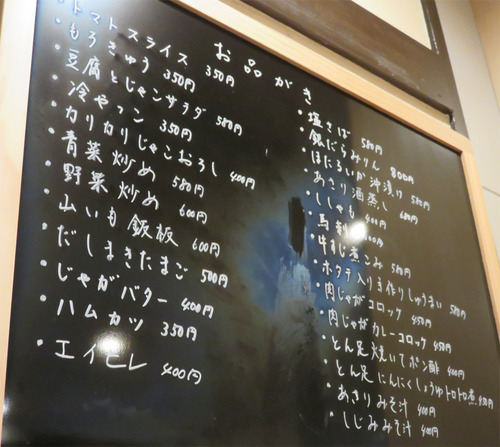 お品がき
・トマトスライス 350円
・もろきゅう 350円
・豆腐とじゃこサラダ 580円
・冷やっこ 350円
・カリカリじゃこおろし 400円
・青菜炒め 580円
・野菜炒め 600円
・山いも鉄板 600円
・だしまきたまご 500円
・じゃがバター 400円
・ハムカツ 350円
・エイヒレ 400円
・塩さば 580円
・銀だらみりん 800円
・ほたるいか沖漬け 500円
・あさり酒蒸し 600円
・ししゃも 400円
・馬刺
・牛すじ煮こみ 580円
・ホタテ入り手作りしゅうまい 580円
・肉じゃがコロッケ 450円
・肉じゃがカレーコロッケ 450円
・とん足焼いてポン酢 400円
・とん足にんにくしょうゆトロトロ煮
・あさりみそ汁 400円
・しじみみそ汁 400円